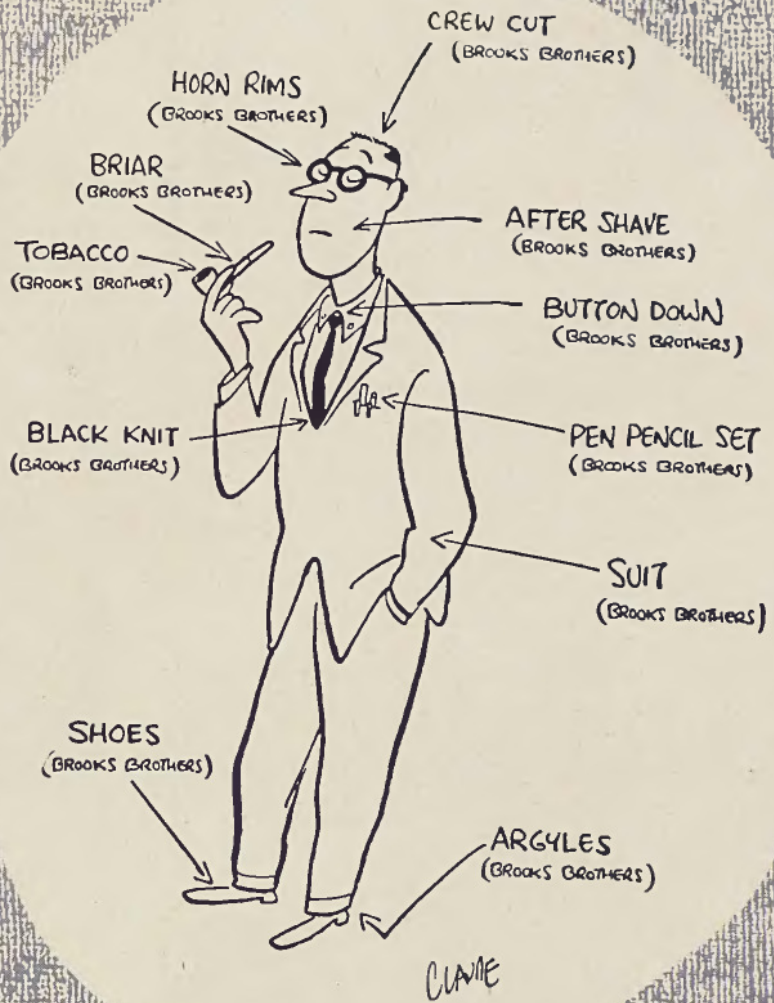 CREW CUT
(BROOKS BROTHERS)
HORN RIMS
(BROOKS BROTHERS)
BRIAR
(BROOKS BROTHERS)
TOBACCO
(BROOKS BROTHERS)
AFTER SHAVE
(BROOKS BROTHERS)
BUTTON DOWN
(BROOKS BROTHERS)
BLACK KNIT
(BROOKS BROTHERS)
PEN PENCIL SET
(BROOKS BROTHERS)
SUIT
(BROOKS BROTHERS)
SHOES
(BROOKS BROTHERS)
ARGYLES
(BROOKS BROTHERS)
CLAUDE